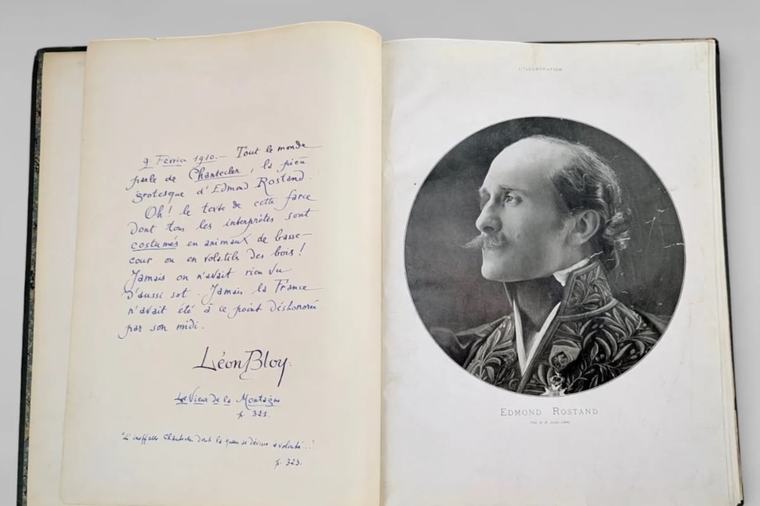 9 Février 1910. – Tout le monde
parle de Chantecler, la pièce
grotesque d'Edmond Rostand.
Oh! le texte de cette farce
dont tous les interprètes sont
costumés en animaux de basse-
cour ou en volatils des bois!
Jamais on n'avait rien vu
d'aussi sot. Jamais la France
n'avait été à ce point déshonorée
par son midi.
Léon Bloy
Le Vieux de la Montagne
p. 321.
"L'ineffable Chantecler dont la queue se dévisse à volonté...!
p. 323.
L'ILLUSTRATION
EDMOND ROSTAND